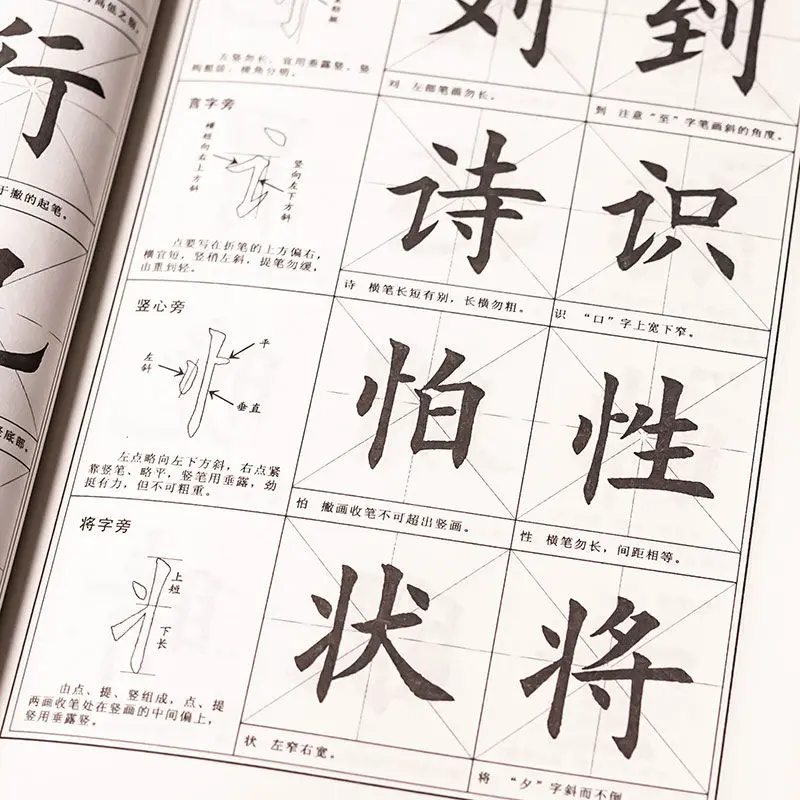 行
于撇的起笔。
左竖勿长，宜用垂露竖，竖
刘
刘 左部笔画勿长。
到
到 注意“至”字笔画斜的角度。
言字旁
横短向右上方斜
竖向左下方斜
点要写在折笔的上方偏右，
横宜短，竖稍左斜，提笔勿缓，
由重到轻。
诗
诗 横笔长短有别，长横勿粗。
识
识 “口”字上宽下窄。
竖心旁
左斜
平
垂直
左点略向左下方斜，右点紧
靠竖笔、略平，竖笔用垂露，劲
挺有力，但不可粗重。
怕
怕 撇画收笔不可超出竖画。
性
性 横笔勿长，间距相等。
将字旁
上短
下长
由点、提、竖组成，点、提
两画收笔处在竖画的中间偏上，
竖用垂露竖。
状
状 左窄右宽。
将
将 “夕”字斜而不倒